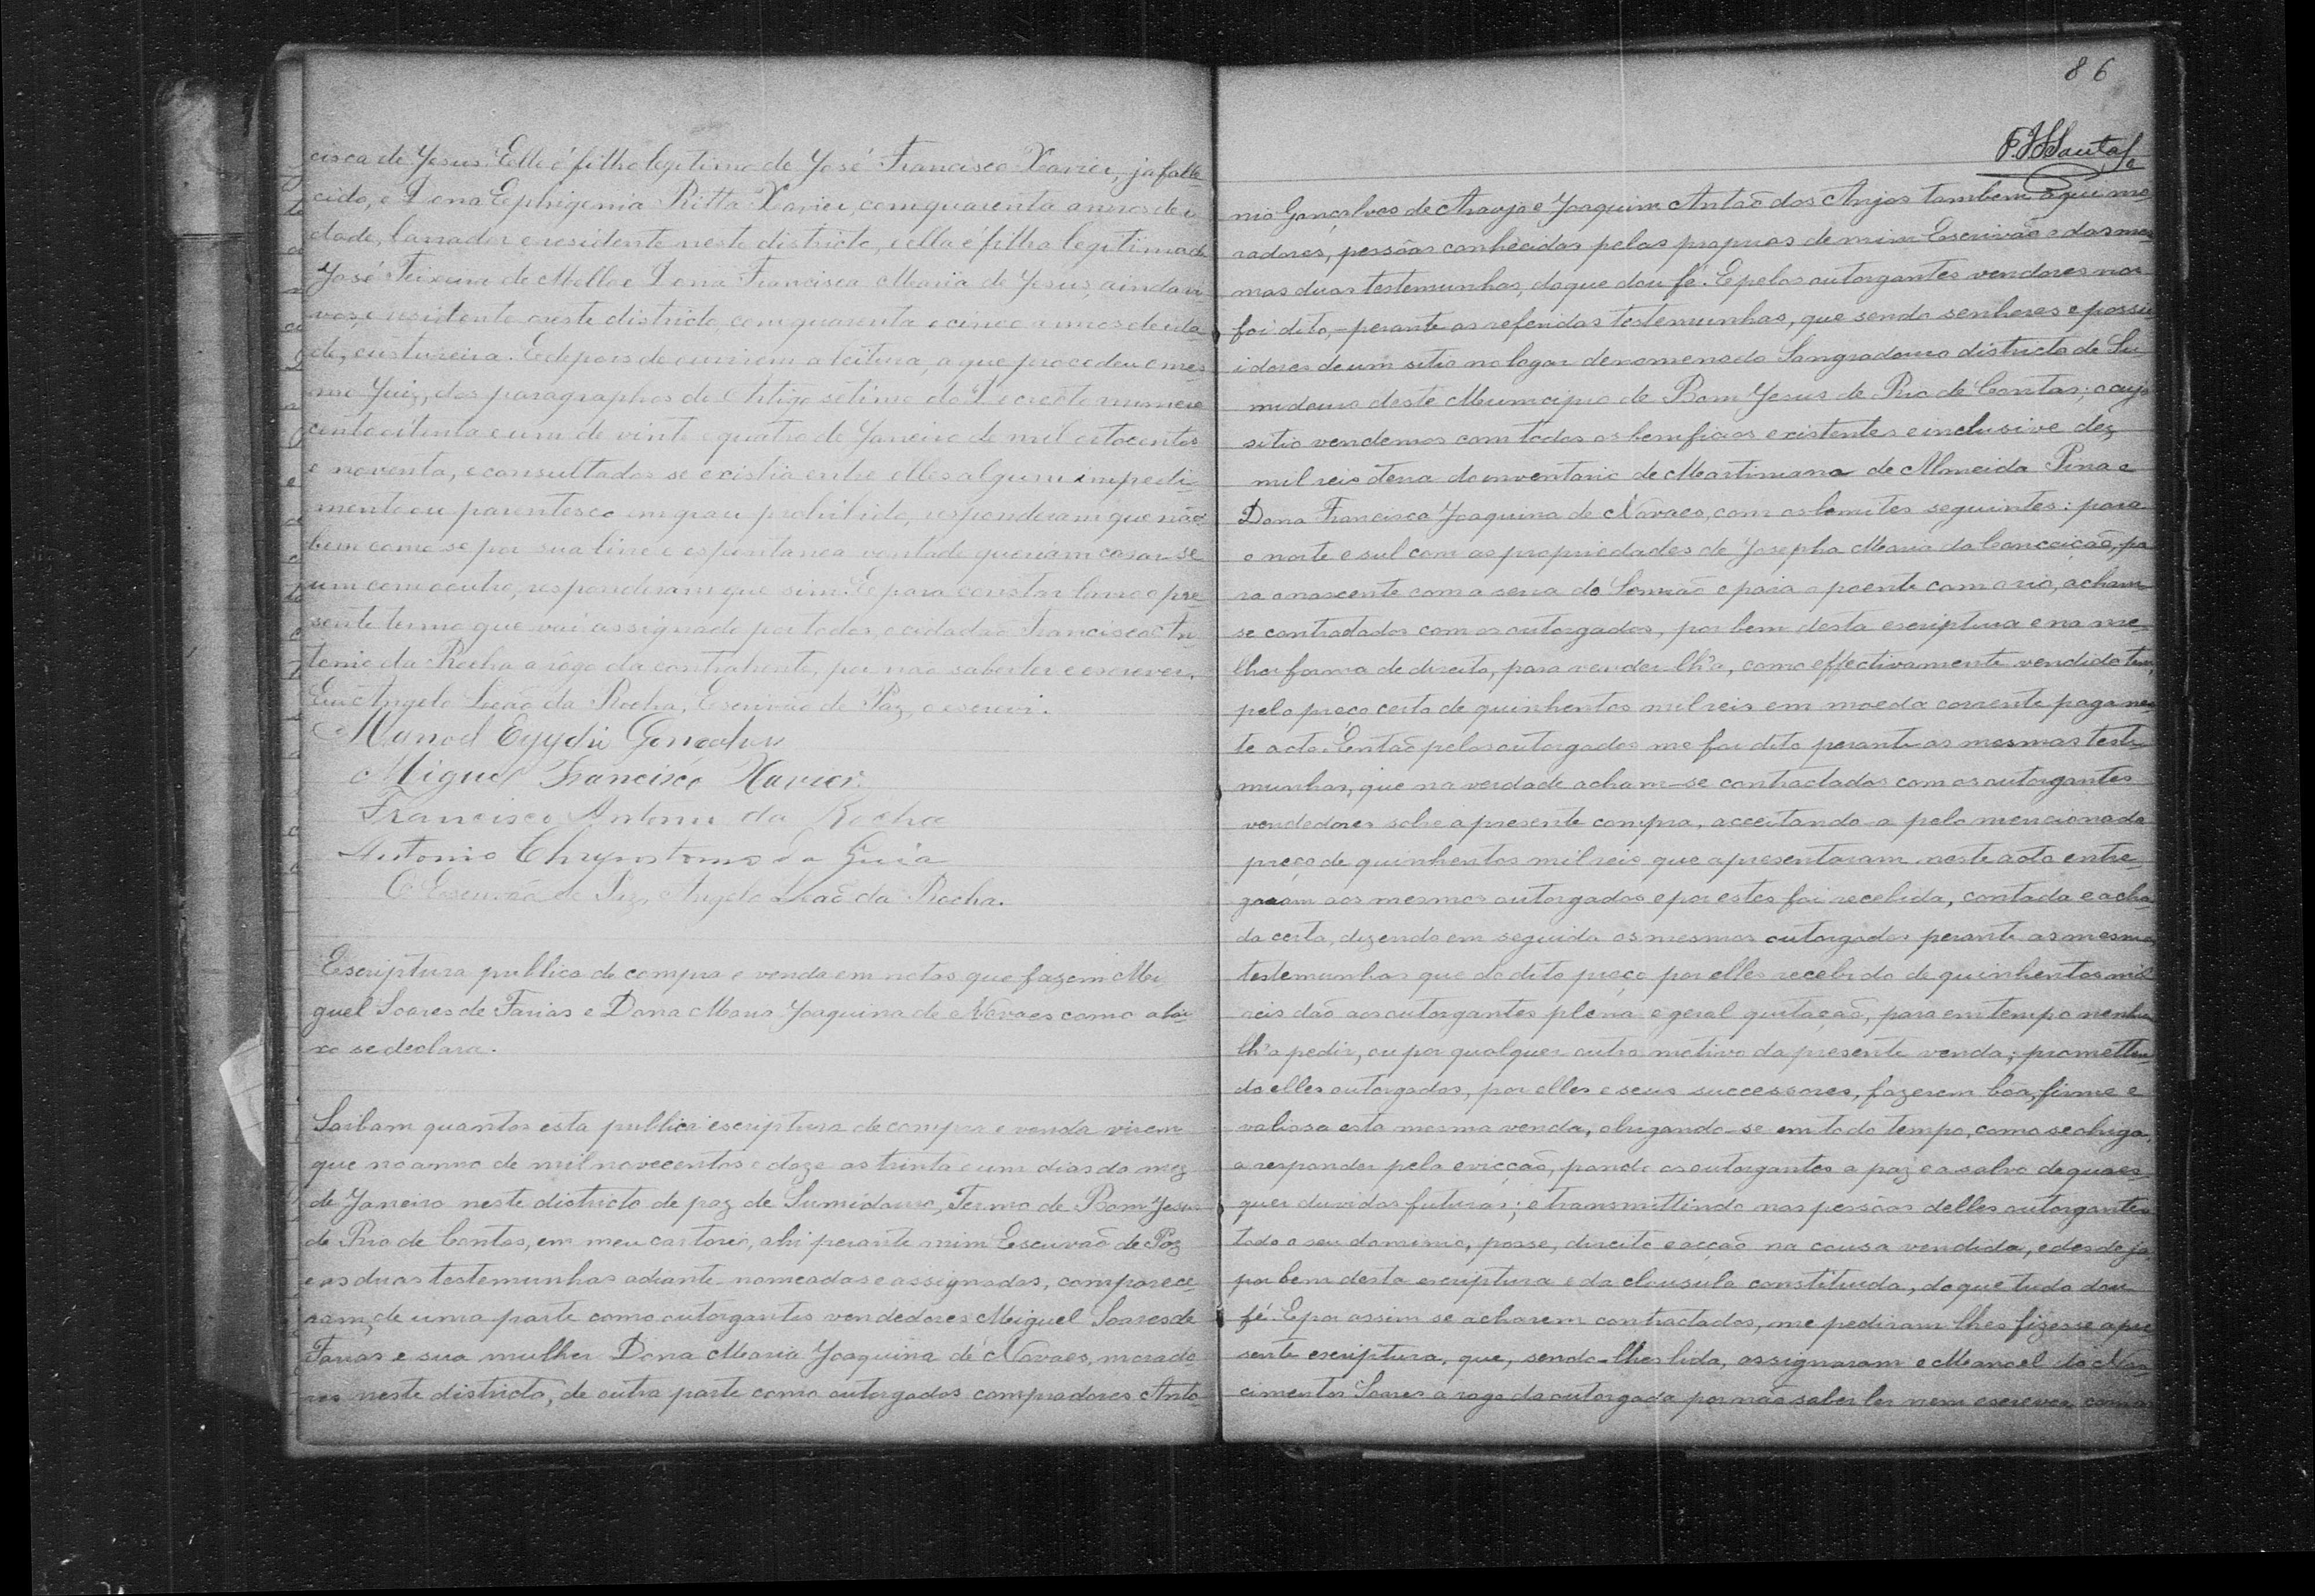 cisca de Jesus. Elle é filho legitimo de José Francisco Xavier, ja falle-
cido, e Dona Ephigenia Ritta Xavier, com quarenta annos de i-
dade, lavrador e residente neste districto, e ella é filha legitima de
José Teixeira de Mello e Dona Francisca Maria de Jesus, ainda vi-
vos, e residente neste districto, com quarenta e cinco annos de ida-
de, custureira. E depois de ouvirem a leitura, a que procedeu o mes-
mo Juiz, dos paragraphos do Artigo setimo do Decreto numero
cento oitenta e um de vinte e quatro de Janeiro de mil oitocentos
e noventa, e consultados se existia entre elles algum impedi-
mento ou parentesco em grau prohibido, responderam que não
bem como se por sua livre e espontanea vontade queriam casar-se
um com o outro, responderam que sim. E para constar lavro o pre-
sente termo que vai assignado por todos, o cidadão Francisco An-
tonio da Rocha a rogo da contrahente, por não saber ler e escrever.
Eu Angelo Leão da Rocha, Escrivão de Paz, o escrevi.
Manoel Egydio Gonçalves
Miguel Francisco Xavier.
Francisco Antonio da Rocha
Antonio Chrysostomo da Guia
O Escrivão de Paz, Angelo Leão da Rocha.
Escriptura publica de compra e venda em notas que fazem Mi-
guel Soares de Farias e Dona Maria Joaquina de Novaes como abai-
xo se declara.
Saibam quantos esta publica escriptura de compra e venda virem
que no anno de mil novecentos e doze aos trinta e um dias do mez
de Janeiro neste districto de paz de Sumidouro, Termo de Bom Jesus
do Rio de Contas, em meu cartorio, ahi perante mim Escrivão de Paz
e as duas testemunhas adiante nomeadas e assignadas, comparece-
ram, de uma parte como outorgantes vendedores Miguel Soares de
Farias e sua mulher Dona Maria Joaquina de Novaes, morado-
res neste districto, de outra parte como outorgados compradores Anto-
86
nio Gonçalves de Araujo e Joaquim Antão dos Anjos tambem aqui mo-
radores, pessôas conhecidas pelas proprias de mim Escrivão e das mes-
mas duas testemunhas, do que dou fé. E pelos outorgantes vendores nos
foi dito, perante as referidas testemunhas, que sendo senhores e possu-
idores de um sitio no logar denomenado Sangradouro districto de Su-
midouro deste Municipio de Bom Jesus do Rio de Contas; o cujo
sitio vendemos com todos os beneficios existentes e inclusive dez
mil reis de na do inventario de Martiniano de Almeida Pina e
Dona Francisca Joaquina de Novaes, com os lemites seguintes: para
o norte e sul com as propriedades de Josepha Maria da Conceição, pa-
ra o nascente com a serra do e para o poente com o rio, acham-
se contractados com os outorgados, por bem desta escriptura e na me-
lhor forma de direito, para vender-lh'o, como effectivamente vendido tem,
pelo preço certo de quinhentos mil reis em moeda corrente pago nes-
te acto. Então pelos outorgados me foi dito perante as mesmas teste-
munhas, que na verdade acham-se contractados com os outorgantes
vendedores sobre a presente compra, acceitando-a pelo mencionado
preço de quinhentos mil reis que apresentaram neste acto entre-
garam aos mesmos outorgados e por estes foi recebida, contada e acha-
da certa, dizendo em seguida os mesmos outorgados perante as mesmas
testemunhas que do dito preço por elles recebido de quinhentos mil
reis dão aos outorgantes plena e geral quitação, para em tempo nenhum
lh'o pedir, ou por qualquer outro motivo da presente venda; prometten-
do elles outorgados, por elles e seus successores, fazerem boa, firme e
valiosa esta mesma venda, obrigando-se em todo tempo, como se obriga,
a responder pela evicção, pondo os outorgantes a paz e a salvo de quaes-
quer duvidas futuras; e transmittindo nas pessôas delles outorgantes
todo o seu dominio, posse, direito e acção na cousa vendida, e desde ja
por bem desta escriptura e da clausula constituida, do que tudo dou
fé. E por assim se acharem contractados, me pediram lhes fizesse a pre-
sente escriptura, que, sendo-lhes lida, assignaram e Manoel do Nas-
cimentos Soares a rogo da outorgada por não saber ler nem escrever com as